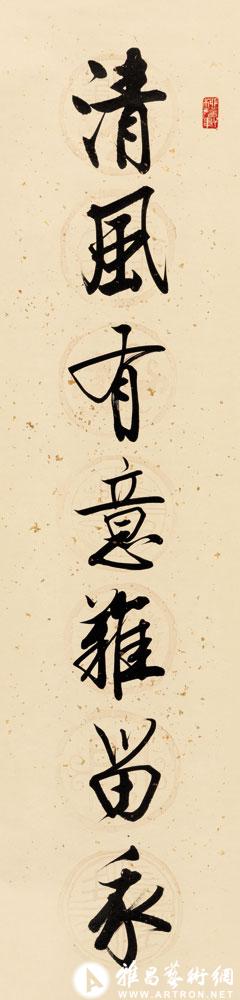 清風有意難留我
雅昌藝術網
WWW.ARTRON.NET